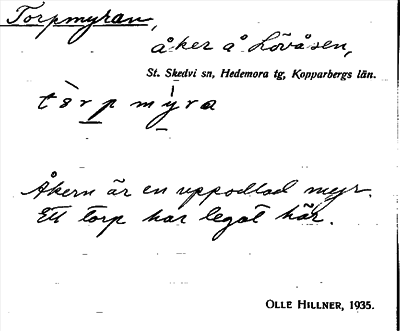 Torpmyran,
åker å Lövåsen,
St. Skedvi sn, Hedemora tg, Kopparbergs län.
tòrp mýra
Åkern är en uppodlad myr.
Ett torp har legat här.
OLLE HILLNER, 1935.